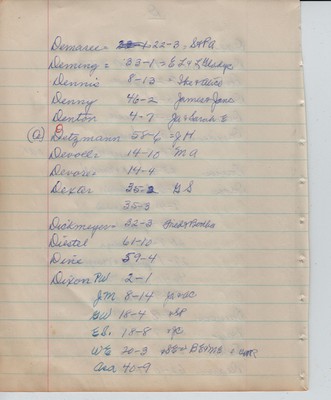 Demaree = 22-3 = S+PA
Deming = 33-1 = E L + L Gladys
Dennis 8-13 Ike + Alice
Denny 46-2 James + Jane
Denton 4-7 Jo + Sarah E
(a) Detzmann 58-6 = J H
Devoll 14-10 M A
Devore 14-4
Dexter 35-2 G S
35-3
Dickmeyer = 32-3
Diestel 61-10
Dine 59-4
Dixon PW 2-1
JM 8-14
GW 18-4 + SP
ES. 18-8
WE 20-3
Asa 40-9